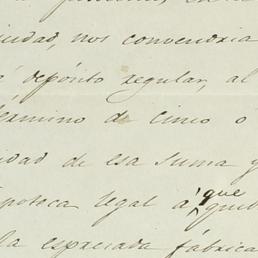 iudad, nos convendria
depósito regular, al
érmino de cinco o
idad de esa suma y
ipoteca legal á que
la espresada fábrica